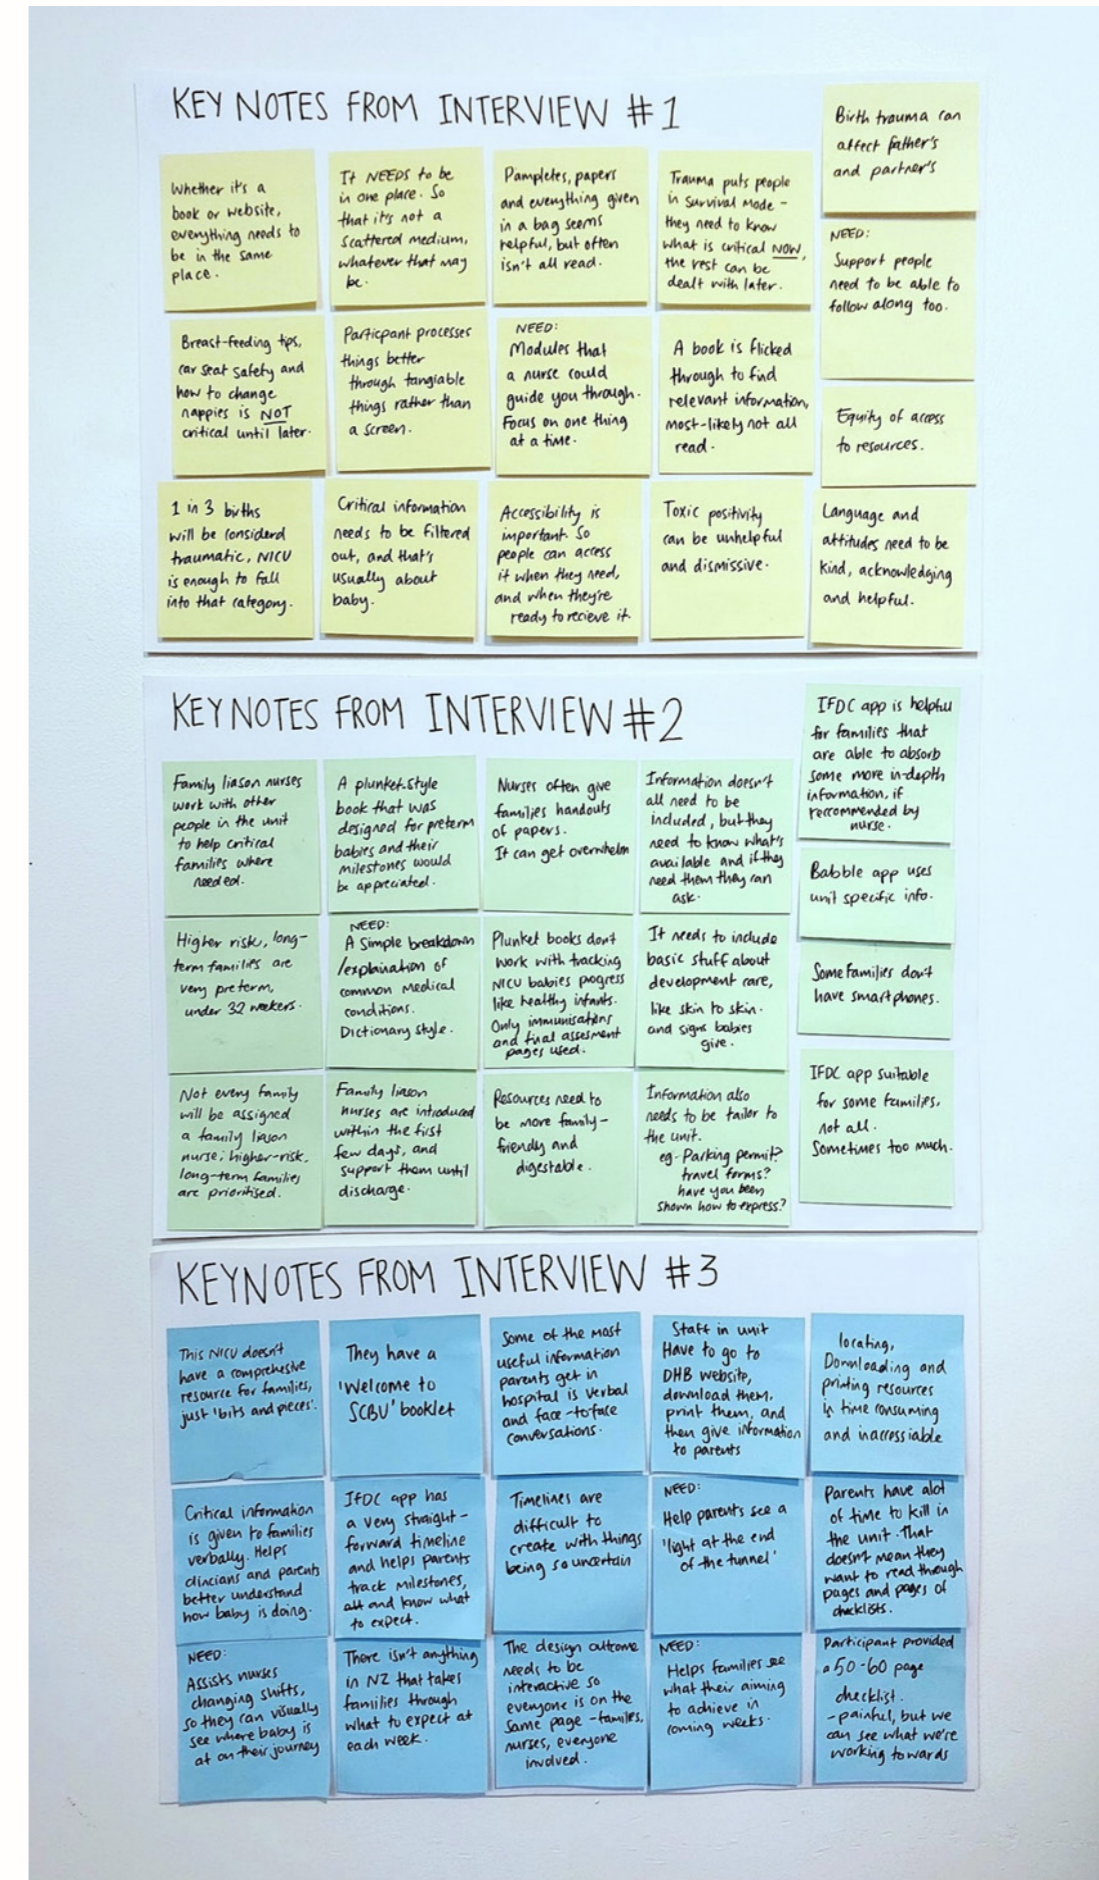 KEY NOTES FROM INTERVIEW #1
Whether it's a
book or website,
everything needs to
be in the same
place.
It NEEDS to be
in one place. So
that it's not a
scattered medium,
whatever that may
be.
Pampletes, papers
and everything given
in a bag seems
helpful, but often
isn't all read.
Trauma puts people
in survival mode -
they need to know
what is critical NOW,
the rest can be
dealt with later.
Birth trauma can
affect father's
and partner's
NEED:
Support people
need to be able to
follow along too.
Breast-feeding tips,
car seat safety and
how to change
nappies is NOT
critical until later.
Particpant processes
things better
through tangiable
things rather than
a screen.
NEED:
Modules that
a nurse could
guide you through.
Focus on one thing
at a time.
A book is flicked
through to find
relevant information,
most-likely not all
read.
Equity of access
to resources.
1 in 3 births
will be considerd
traumatic, NICU
is enough to fall
into that category.
Critical information
needs to be filtered
out, and that's
usually about
baby.
Accessibility is
important. So
people can access
it when they need,
and when they're
ready to recieve it.
Toxic positivity
can be unhelpful
and dismissive.
Language and
attitudes need to be
kind, acknowledging
and helpful.
KEYNOTES FROM INTERVIEW #2
Family liason nurses
work with other
people in the unit
to help critical
families where
needed.
A plunket-style
book that was
designed for preterm
babies and their
milestones would
be appreciated.
Nurses often give
families handouts
of papers.
It can get overwhelm
Information doesn't
all need to be
included, but they
need to know what's
available and if they
need them they can
ask.
IFDC app is helpful
for families that
are able to absorb
some more in-depth
information, if
reccomended by
nurse.
Babble app uses
unit specific info.
Higher risk, long-
term families are
very preterm,
under 32 weekers.
NEED:
A simple breakdown
/explaination of
common medical
conditions.
Dictionary style.
Plunket books don't
work with tracking
NICU babies progress
like healthy infants.
Only immunisations
and final assesment
pages used.
It needs to include
basic stuff about
development care,
like skin to skin.
and signs babies
give.
Some families don't
have smartphones.
Not every family
will be assigned
a family liason
nurse; higher-risk,
long-term families
are prioritised.
Family liason
nurses are introduced
within the first
few days, and
support them until
discharge.
Resources need to
be more family-
friendly and
digestable.
Information also
needs to be tailor to
the unit.
eg. Parking permit?
travel forms?
have you been
shown how to express?
IFDC app suitable
for some families,
not all.
Sometimes too much.
KEYNOTES FROM INTERVIEW #3
This NICU doesn't
have a comprehesive
resource for families,
just 'bits and pieces'.
They have a
'Welcome to
SCBU' booklet
Some of the most
useful information
parents get in
hospital is verbal
and face-to-face
conversations.
Staff in unit
Have to go to
DHB website,
download them,
print them, and
then give information
to parents
locating,
Downloading and
printing resources
is time consuming
and inaccessiable
Critical information
is given to families
verbally. Helps
clincians and parents
better understand
how baby is doing.
IFDC app has
a very straight-
forward timeline
and helps parents
track milestones,
and know what
to expect.
Timelines are
difficult to
create with things
being so uncertain
NEED:
Help parents see a
'light at the end
of the tunnel'
Parents have alot
of time to kill in
the unit. That
doesn't mean they
want to read through
pages and pages of
checklists.
NEED:
Assists nurses
changing shifts,
so they can visually
see where baby is
at on their journey
There isn't anything
in NZ that takes
families through
what to expect at
each week.
The design outcome
needs to be
interactive so
everyone is on the
same page - familes,
nurses, everyone
involved.
NEED:
Helps families see
what their aiming
to achieve in
coming weeks.
Participant provided
a 50-60 page
checklist.
- painful, but we
can see what we're
working towards